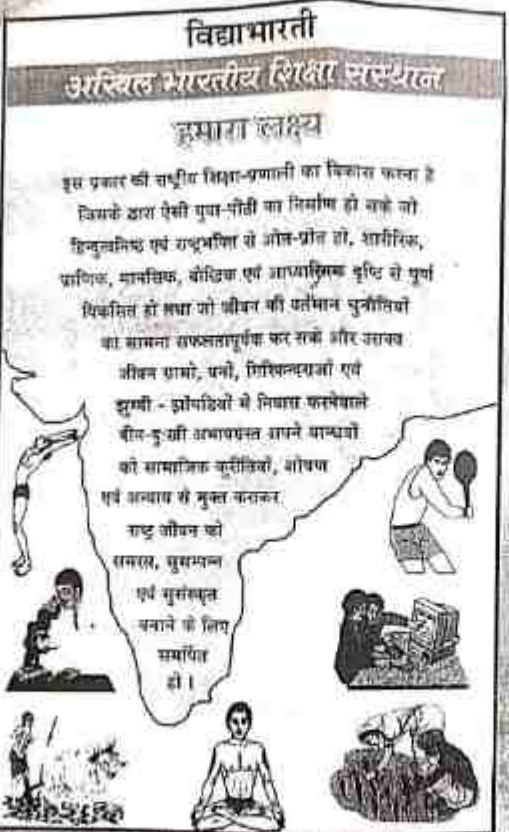 विद्याभारती
अखिल भारतीय शिक्षा संस्थान
हमारा लक्ष्य
इस प्रकार की राष्ट्रीय शिक्षा-प्रणाली का विकास करना है
जिसके द्वारा ऐसी युवा-पीढी का निर्माण हो सके जो
हिन्दुत्वनिष्ठ एवं राष्ट्रभक्ति से ओत-प्रोत हो, शारीरिक,
प्राणिक, मानसिक, बौद्धिक एवं आध्यात्मिक दृष्टि से पूर्ण
विकसित हो तथा जो जीवन की वर्तमान चुनौतियों
का सामना सफलतापूर्वक कर सके और उसका
जीवन ग्रामो, वनों, गिरिकन्दराओं एवं
झुग्गी - झोंपडियों में निवास करनेवाले
दीन-दुःखी अभावग्रस्त अपने बान्धवों
को सामाजिक कुरीतियों, शोषण
एवं अन्याय से मुक्त कराकर
राष्ट्र जीवन को
समरस, सुसम्पन्न
एवं सुसंस्कृत
बनाने के लिए
समर्पित
हो ।